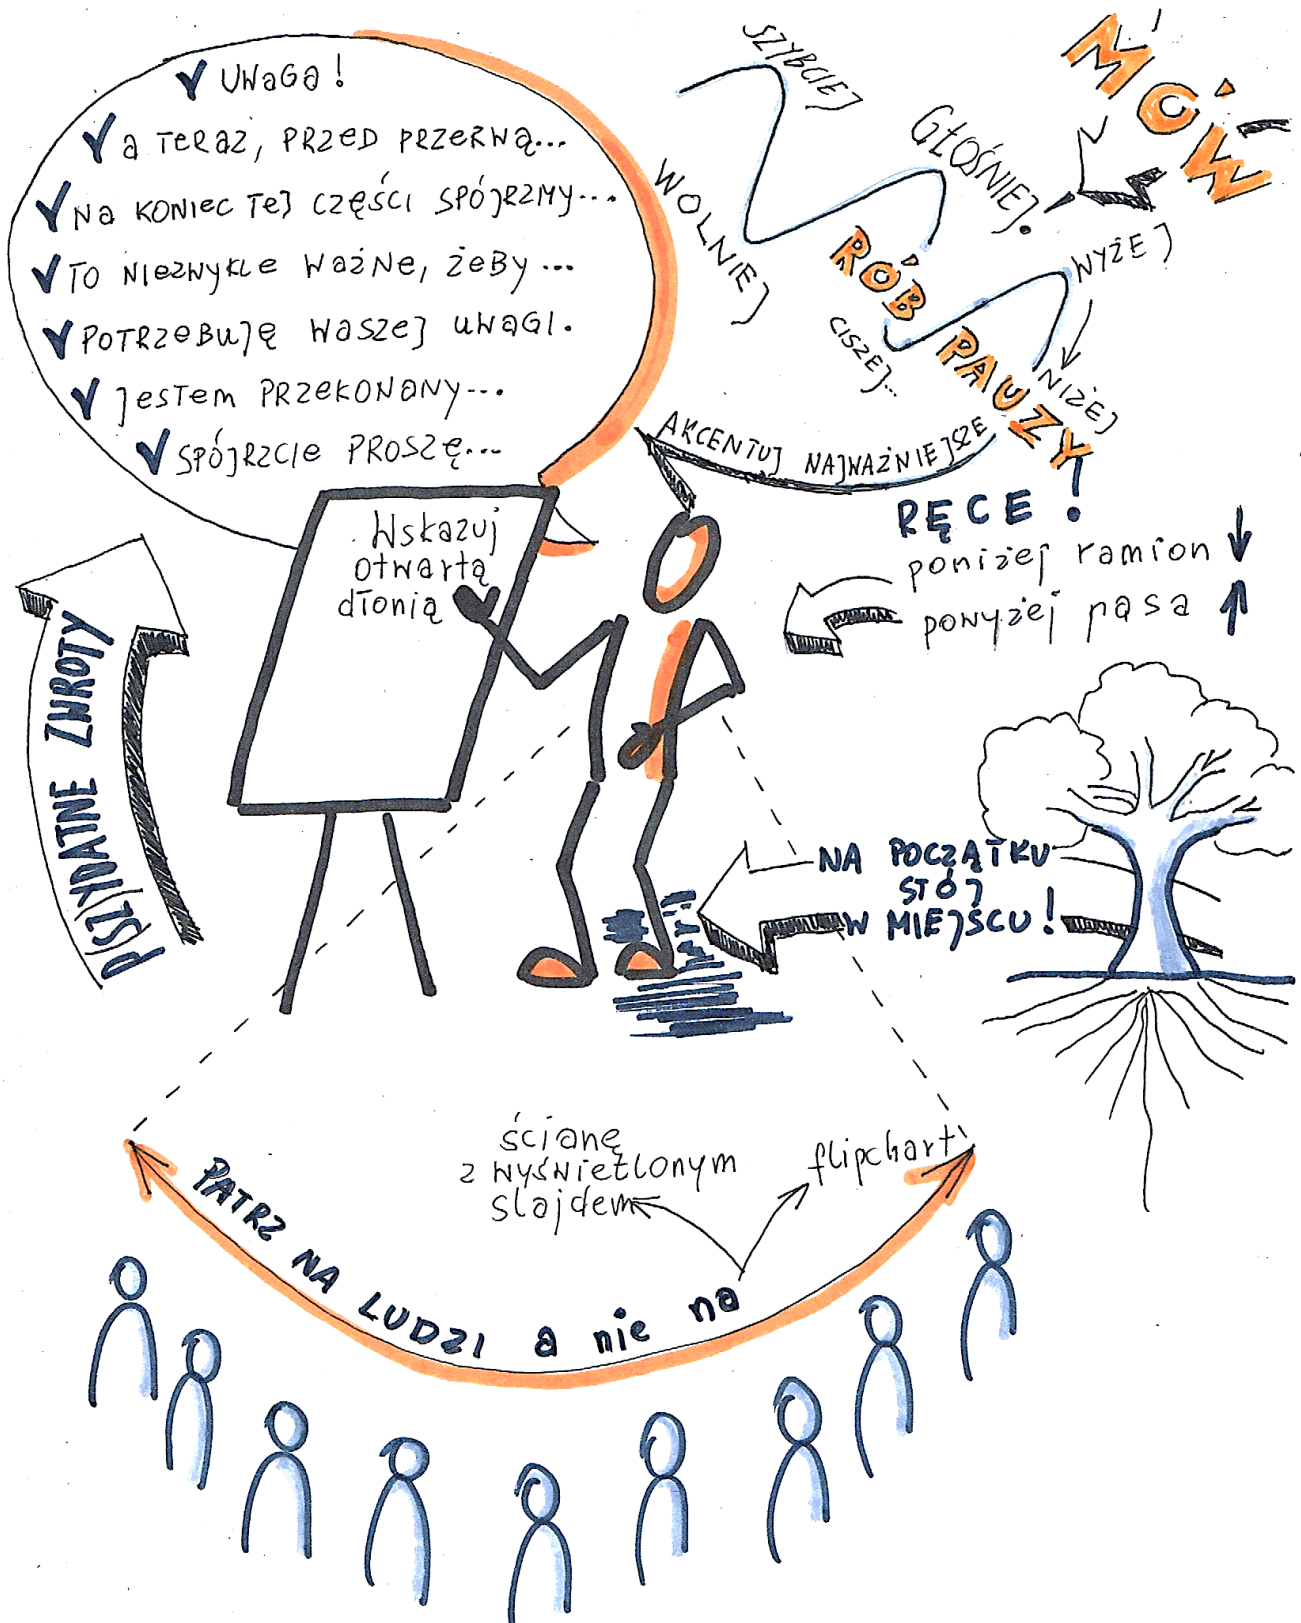 UWAGA!
A TERAZ, PRZED PRZERWĄ...
NA KONIEC TEJ CZĘŚCI SPÓJRZMY...
TO NIEZWYKLE WAŻNE, ŻEBY...
POTRZEBUJĘ WASZEJ UWAGI.
JESTEM PRZEKONANY...
SPÓJRZCIE PROSZĘ...
MÓW
SZYBCIEJ
WOLNIEJ
GŁOŚNIEJ.
CISZEJ...
WYŻEJ
NIŻEJ
RÓB PAUZY!
AKCENTUJ NAJWAŻNIEJSZE
RĘCE
poniżej ramion
powyżej pasa
Wskazuj
otwartą
dłonią
P(SZ)YDATNE ZWROTY
NA POCZĄTKU
STÓJ
W MIEJSCU!
ścianę
z wyświetlonym
slajdem
flipchart
PATRZ NA LUDZI a nie na